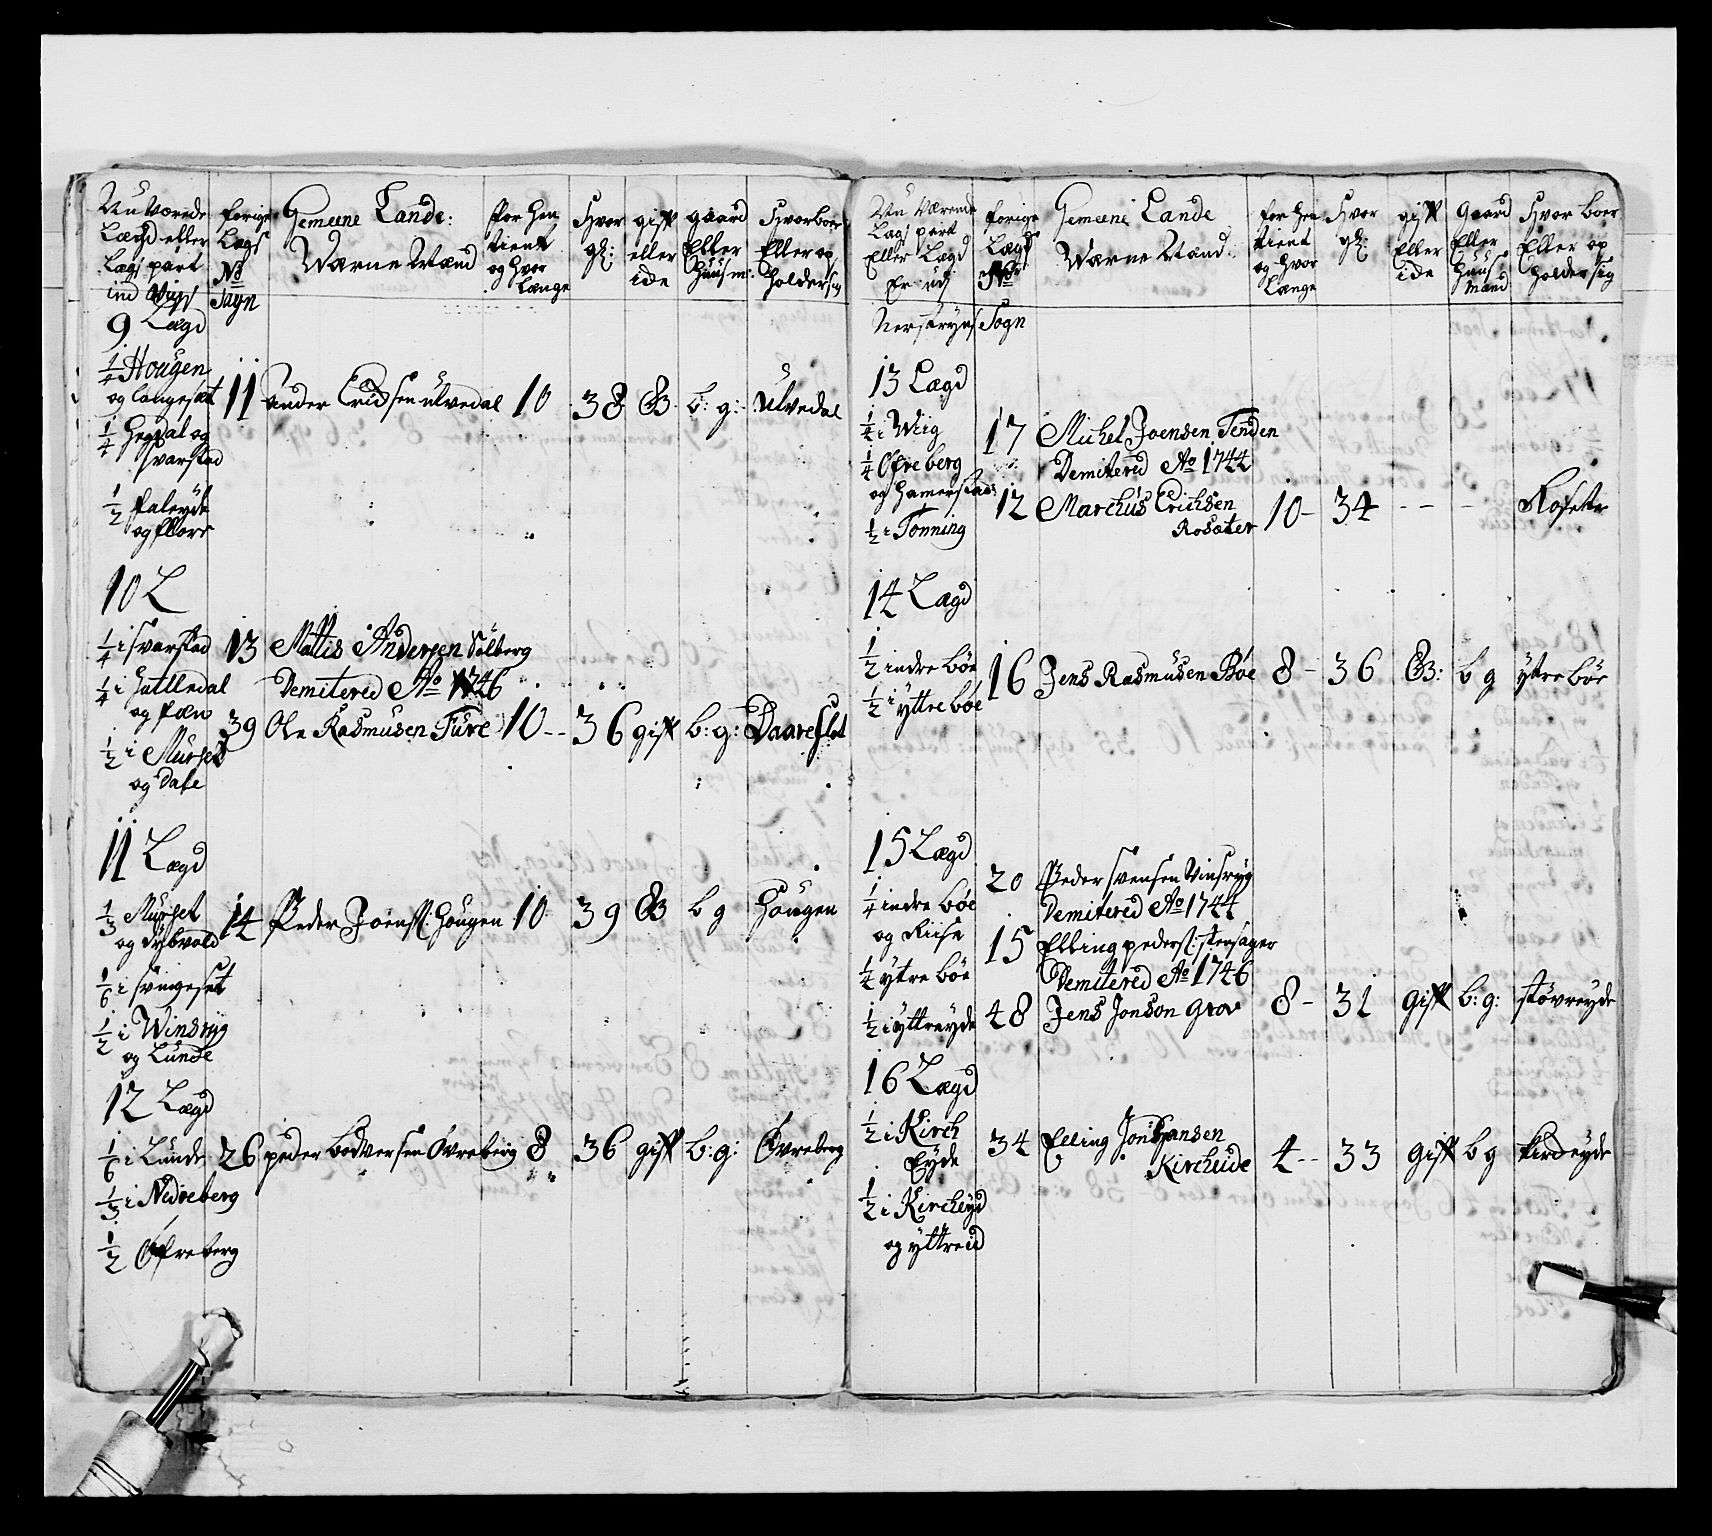 Nu Værede
Lægd eller
Lægs part
ind Viigs
forige
Lægs
No
Sogn
Gemeene Lande:
Wærne Mænd
for hen
tient
og hvor
Længe
Hvor
gl:
gift
eller
ide
gaard
Eller
Huusm:
Hvor boer
Eller op
holder sig
9 Lægd
1/4 Hougen
og Langeset
1/4 Hegdal og
svarstad
1/2 faleyde
og flore
11 Ander Erichsen ulvedal 10 38 G b: g: Ulvedal
10 L
1/4 i svarstad
1/4 i Hatledal
og fæn
1/2 i Murset
og Dale
13 Mattis Andersen Solberg
Demitered Ao 1746
39 Ole Rasmusen Ture 10 -- 36 gift b: g: Daareslot
11 Lægd
1/3 Murset
og dybvold
1/6 i svingeset
1/2 i Windsryg
og Lunde
14 Peder Joensl: Hougen 10 39 G b g Hougen
12 Lægd
1/6 i Lunde
1/3 i Nedreberg
1/2 Øfreberg
26 peder bodversen Øvreberg 8 36 gift b: g: Øvreberg
Nu Værende
Lags part
Eller Lægd
Er udj
forige
Lægd
No
Gemeene Lande
Wærne Mænd
for hen
tient
og hvor
Længe
Hvor
gl:
gift
Eller
ide
Gaard
Eller
Huus
Mand
Hvor boer
Eller op
holder sig
Nerstryns Sogn
13 Lægd
1/4 i Wiig
1/4 Øfreberg
og Hamerstad
1/2 i Tonning
17 Michel Joensen Tenden
Demitered Ao 1744
12 Marchus Erichsen
Rosæter 10 - 34 - - - Rosetr
14 Lægd
1/2 indre bøe
1/2 i yttre bøe
16 Jens Rasmusen Bøe 8 - 36 G: b g ytre bøe
15 Lægd
1/4 indre bøe
og Riise
1/4 ytre bøe
1/2 i yttreyde
20 Peder svensen Vinsryg
Demitered Ao 1744
15 Elling pedersl: stensager
Demitered Ao 1746
48 Jens Jonson grov 8 - 31 gift b: g: støvreyde
16 Lægd
1/2 i Kirch
Eyde
1/2 i Kircheyd
og yttreid
34 Elling Jon Hansen
Kircheide 4 -- 33 gift b g kirdeyde